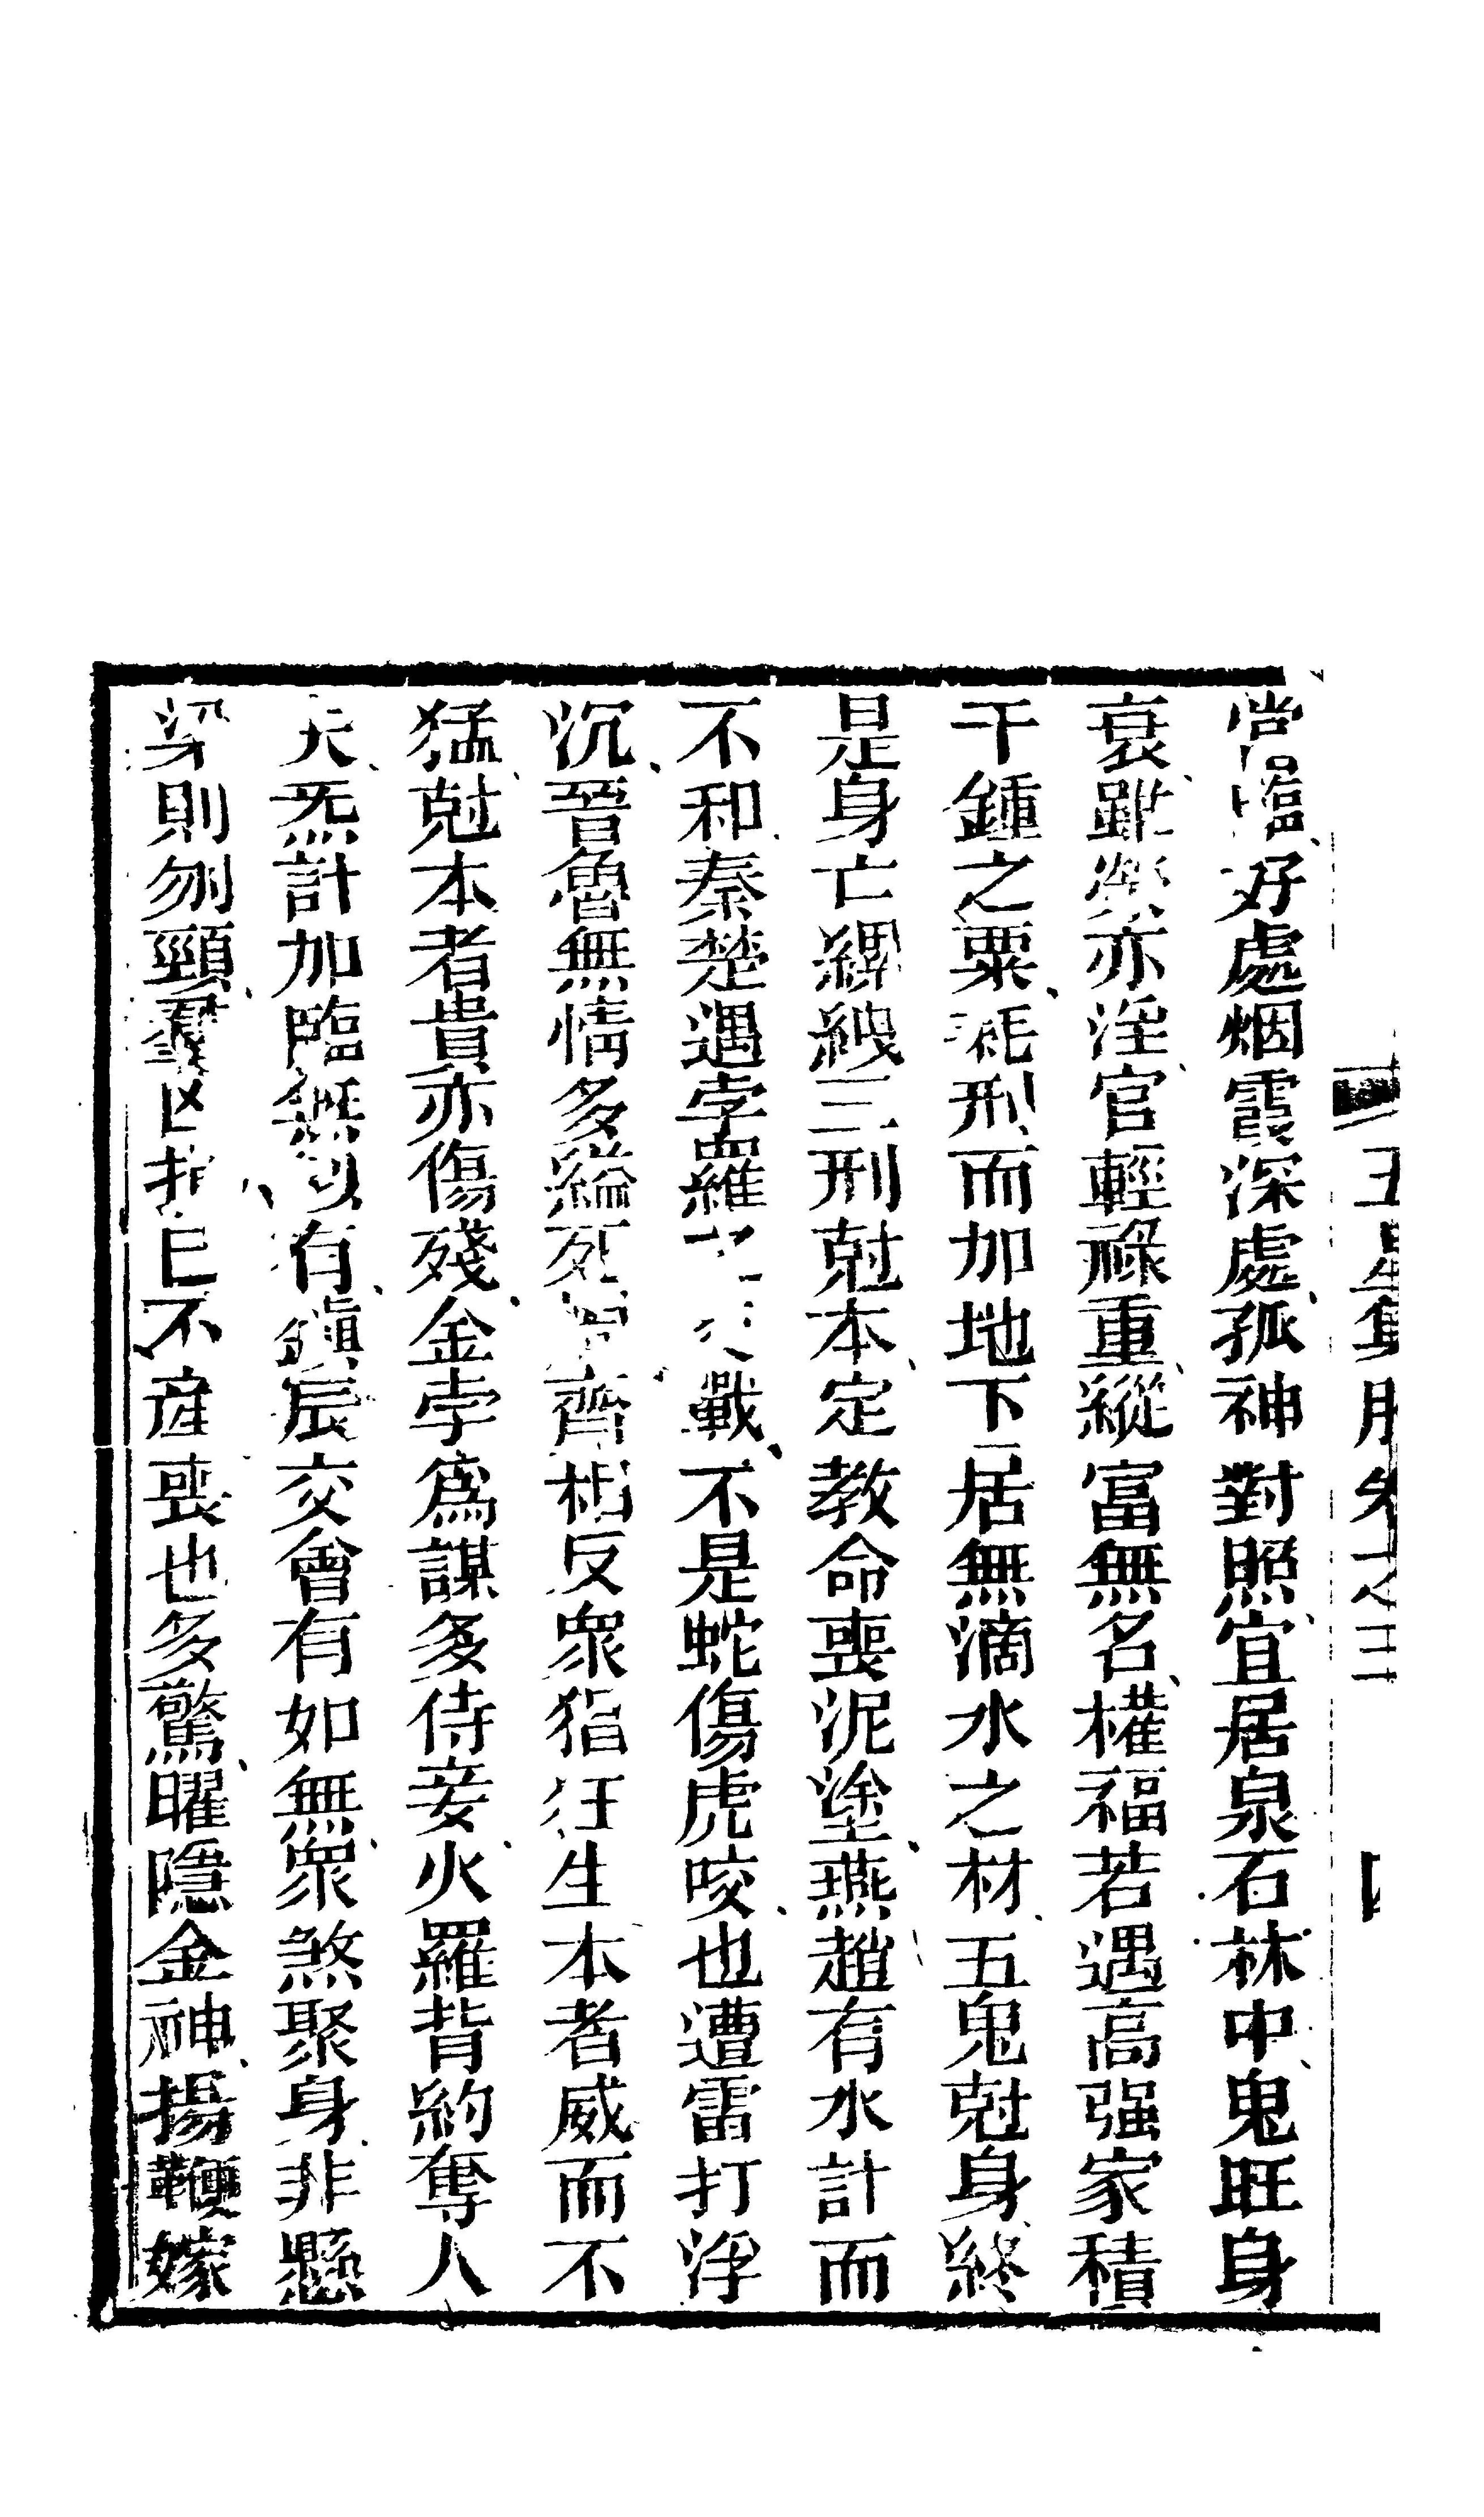 五星集腋卷之三
常臨好處烟霞深處孤神對照宜居泉石林中鬼旺身
衰雖榮亦淫官輕祿重縱富無名權福若遇高强家積
千鍾之粟耗刑而加地下居無滴水之材五鬼尅身終
是身亡縲絏三刑尅本定教命喪泥塗燕趙有水計而
不和秦楚遇孛羅戰不是蛇傷虎咬也遭雷打浮
沉晉魯無情多縊死齊相反衆猖狂生本者威而不
猛尅本者貴亦傷殘金孛爲謀多侍妾火羅背約奪人
夫炁計加臨無以有辰交會有如無衆煞聚身非懸
梁則刎頸羣凶指巳不産喪也多驚曜隱金神揚鞭嫁